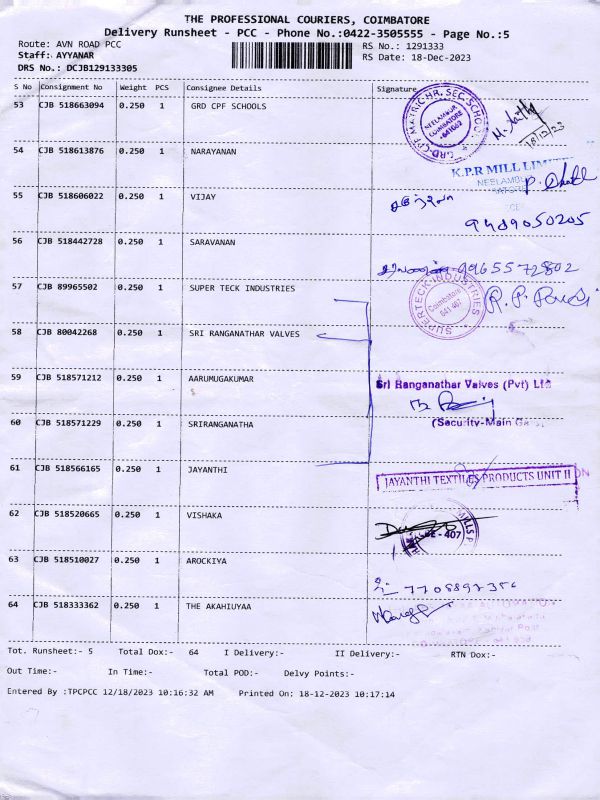 THE PROFESSIONAL COURIERS, COIMBATORE
Delivery Runsheet - PCC - Phone No.:0422-3505555 - Page No.:5
Route: AVN ROAD PCC
RS No.: 1291333
Staff: AYYANAR
RS Date: 18-Dec-2023
DRS No.: DCJB129133305
S No Consignment No Weight PCS Consignee Details Signature
53 CJB 518663094 0.250 1 GRD CPF SCHOOLS
GRD-CPF MATRIC HR. SEC. SCHOOL
NEELAMBUR
COIMBATORE
641062
18/12/23
54 CJB 518613876 0.250 1 NARAYANAN
K.P.R MILL LIMI
NEELAMBU
55 CJB 518606022 0.250 1 VIJAY
9489050205
56 CJB 518442728 0.250 1 SARAVANAN
9965572802
57 CJB 89965502 0.250 1 SUPER TECK INDUSTRIES
SUPERTECK INDUSTRIES
Coimbatore
641 407
58 CJB 80042268 0.250 1 SRI RANGANATHAR VALVES
59 CJB 518571212 0.250 1 AARUMUGAKUMAR
Sri Ranganathar Valves (Pvt) Ltd
(Security-Main Ga
60 CJB 518571229 0.250 1 SRIRANGANATHA
61 CJB 518566165 0.250 1 JAYANTHI
JAYANTHI TEXTILES PRODUCTS UNIT II
62 CJB 518520665 0.250 1 VISHAKA
MILLS
407
63 CJB 518510027 0.250 1 AROCKIYA
64 CJB 518333362 0.250 1 THE AKAHIUYAA
Tot. Runsheet:- 5 Total Dox:- 64 I Delivery:- II Delivery:- RTN Dox:-
Out Time:- In Time:- Total POD:- Delvy Points:-
Entered By :TPCPCC 12/18/2023 10:16:32 AM Printed On: 18-12-2023 10:17:14